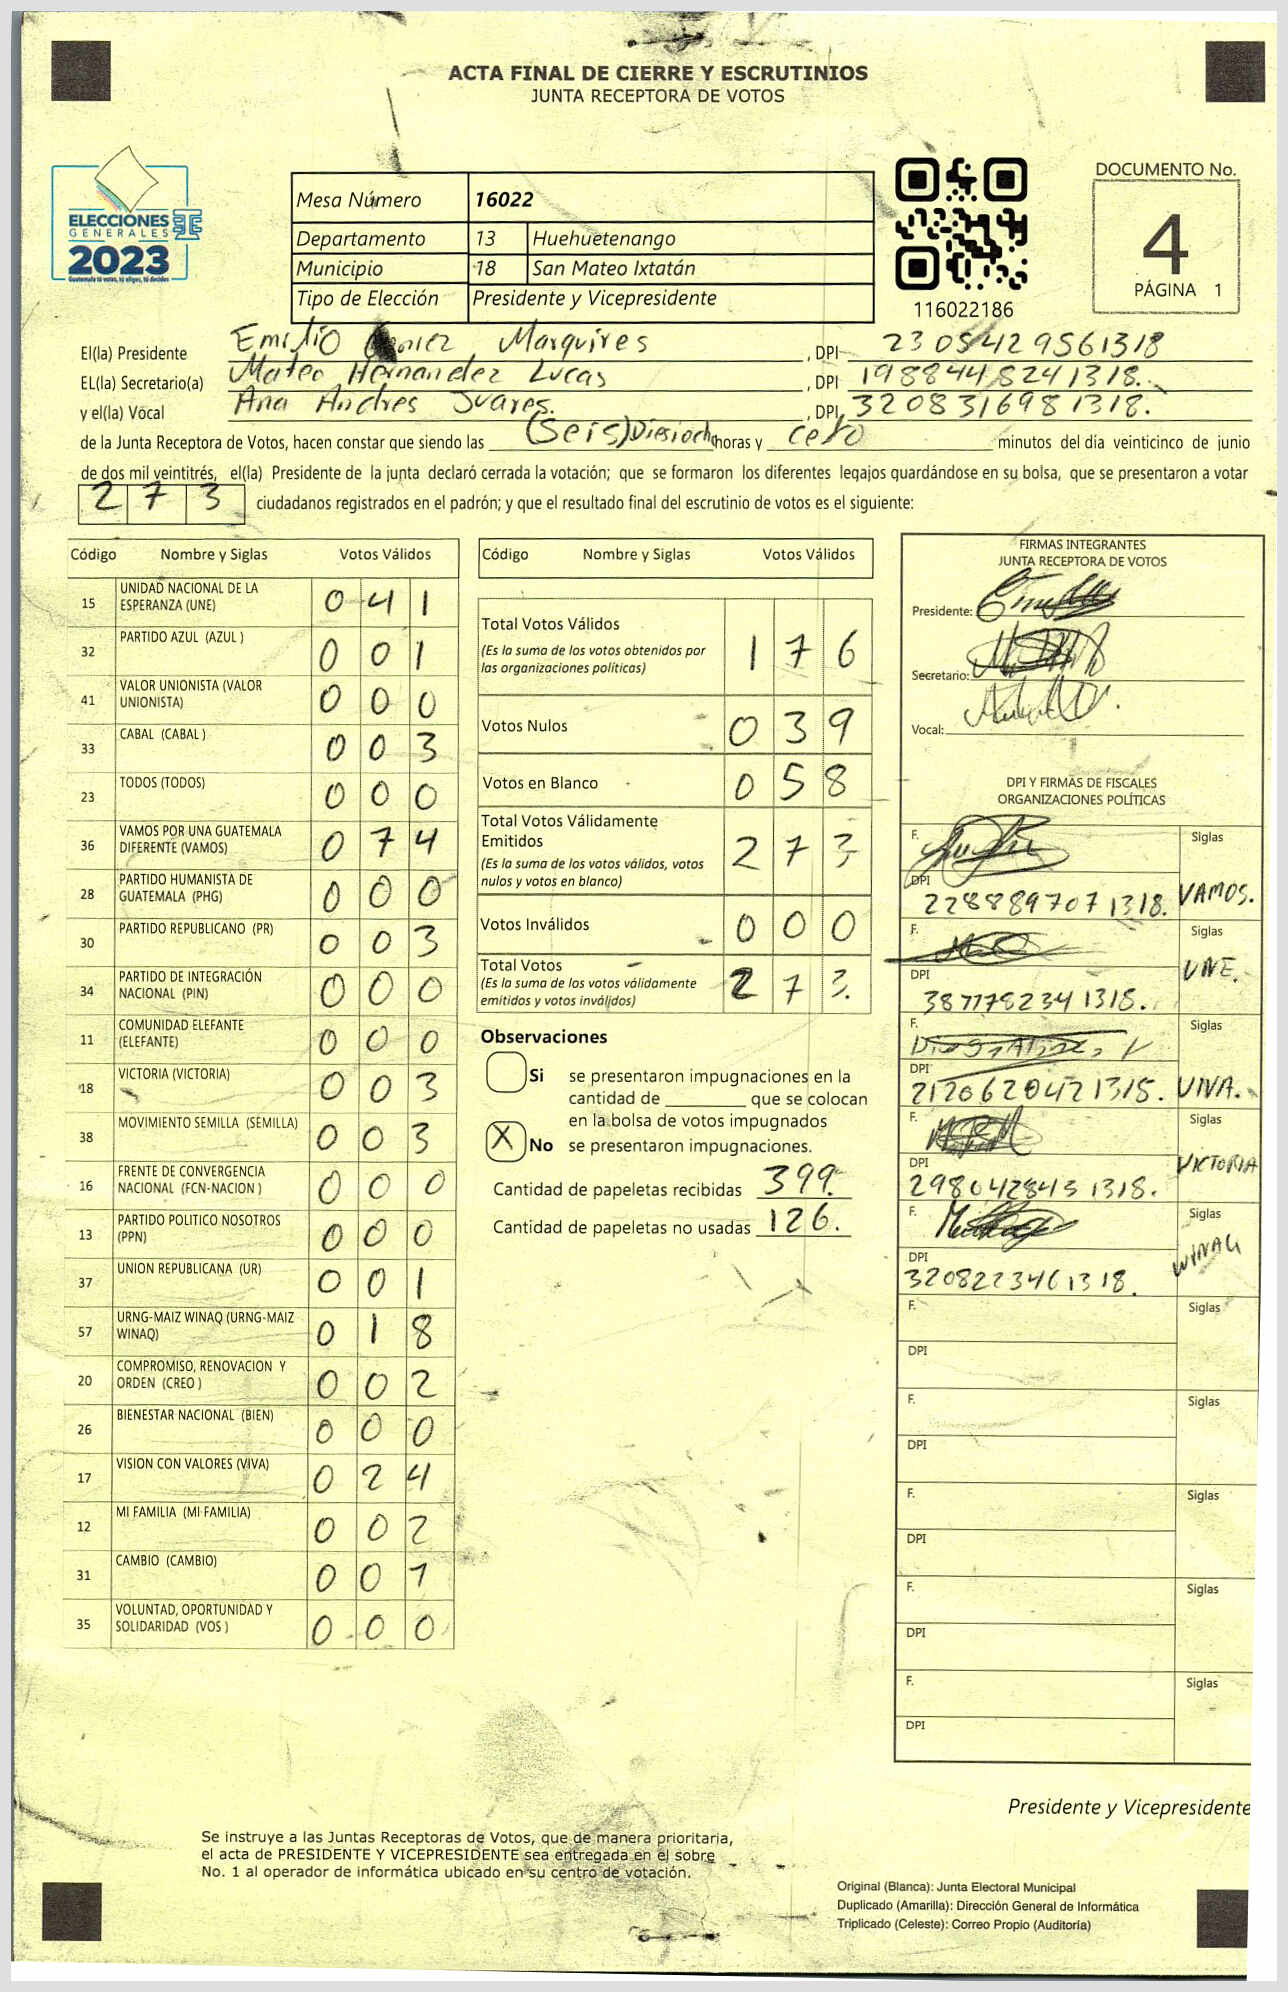 ACTA FINAL DE CIERRE Y ESCRUTINIOS
JUNTA RECEPTORA DE VOTOS
ELECCIONES
GENERALES
2023
Guatemala tú votas, tú eliges, tú decides
Mesa Número 16022
Departamento 13 Huehuetenango
Municipio 18 San Mateo Ixtatán
Tipo de Elección Presidente y Vicepresidente
116022186
DOCUMENTO No.
4
PÁGINA 1
El(la) Presidente Emilio Marquires , DPI 2305429561318
EL(la) Secretario(a) Mateo Hernandez Lucas , DPI 1988448241318.
y el(la) Vocal Ana Andres Juares. , DPI 3208316981318.
de la Junta Receptora de Votos, hacen constar que siendo las (Seis) Diesiocho horas y cero minutos del día veinticinco de junio
de dos mil veintitrés, el(la) Presidente de la junta declaró cerrada la votación; que se formaron los diferentes legajos guardándose en su bolsa, que se presentaron a votar
273 ciudadanos registrados en el padrón; y que el resultado final del escrutinio de votos es el siguiente:
Código Nombre y Siglas Votos Válidos
15 UNIDAD NACIONAL DE LA ESPERANZA (UNE) 041
32 PARTIDO AZUL (AZUL ) 001
41 VALOR UNIONISTA (VALOR UNIONISTA) 000
33 CABAL (CABAL ) 003
23 TODOS (TODOS) 000
36 VAMOS POR UNA GUATEMALA DIFERENTE (VAMOS) 074
28 PARTIDO HUMANISTA DE GUATEMALA (PHG) 000
30 PARTIDO REPUBLICANO (PR) 003
34 PARTIDO DE INTEGRACIÓN NACIONAL (PIN) 000
11 COMUNIDAD ELEFANTE (ELEFANTE) 000
18 VICTORIA (VICTORIA) 003
38 MOVIMIENTO SEMILLA (SEMILLA) 003
16 FRENTE DE CONVERGENCIA NACIONAL (FCN-NACION ) 000
13 PARTIDO POLITICO NOSOTROS (PPN) 000
37 UNION REPUBLICANA (UR) 001
57 URNG-MAIZ WINAQ (URNG-MAIZ WINAQ) 018
20 COMPROMISO, RENOVACION Y ORDEN (CREO ) 002
26 BIENESTAR NACIONAL (BIEN) 000
17 VISION CON VALORES (VIVA) 024
12 MI FAMILIA (MI FAMILIA) 002
31 CAMBIO (CAMBIO) 001
35 VOLUNTAD, OPORTUNIDAD Y SOLIDARIDAD (VOS ) 000
Código Nombre y Siglas Votos Válidos
Total Votos Válidos 176
(Es la suma de los votos obtenidos por
las organizaciones políticas)
Votos Nulos 039
Votos en Blanco 058
Total Votos Válidamente
Emitidos 273
(Es la suma de los votos válidos, votos
nulos y votos en blanco)
Votos Inválidos 000
Total Votos 273.
(Es la suma de los votos válidamente
emitidos y votos inválidos)
Observaciones
Si se presentaron impugnaciones en la
cantidad de ________ que se colocan
en la bolsa de votos impugnados
X No se presentaron impugnaciones.
Cantidad de papeletas recibidas 399.
Cantidad de papeletas no usadas 126.
FIRMAS INTEGRANTES
JUNTA RECEPTORA DE VOTOS
Presidente:
Secretario:
Vocal:
DPI Y FIRMAS DE FISCALES
ORGANIZACIONES POLÍTICAS
F. Siglas
DPI 2288897071318. VAMOS.
F. Siglas
DPI 3871782341318. UNE.
F. Siglas
DPI 2120620421318. VIVA.
F. Siglas
DPI 2980428451318. VICTORIA
F. Siglas
DPI 3208223461318. WINAQ
F. Siglas
DPI
F. Siglas
DPI
F. Siglas
DPI
F. Siglas
DPI
F. Siglas
DPI
Presidente y Vicepresidente
Se instruye a las Juntas Receptoras de Votos, que de manera prioritaria,
el acta de PRESIDENTE Y VICEPRESIDENTE sea entregada en el sobre
No. 1 al operador de informática ubicado en su centro de votación.
Original (Blanca): Junta Electoral Municipal
Duplicado (Amarilla): Dirección General de Informática
Triplicado (Celeste): Correo Propio (Auditoría)